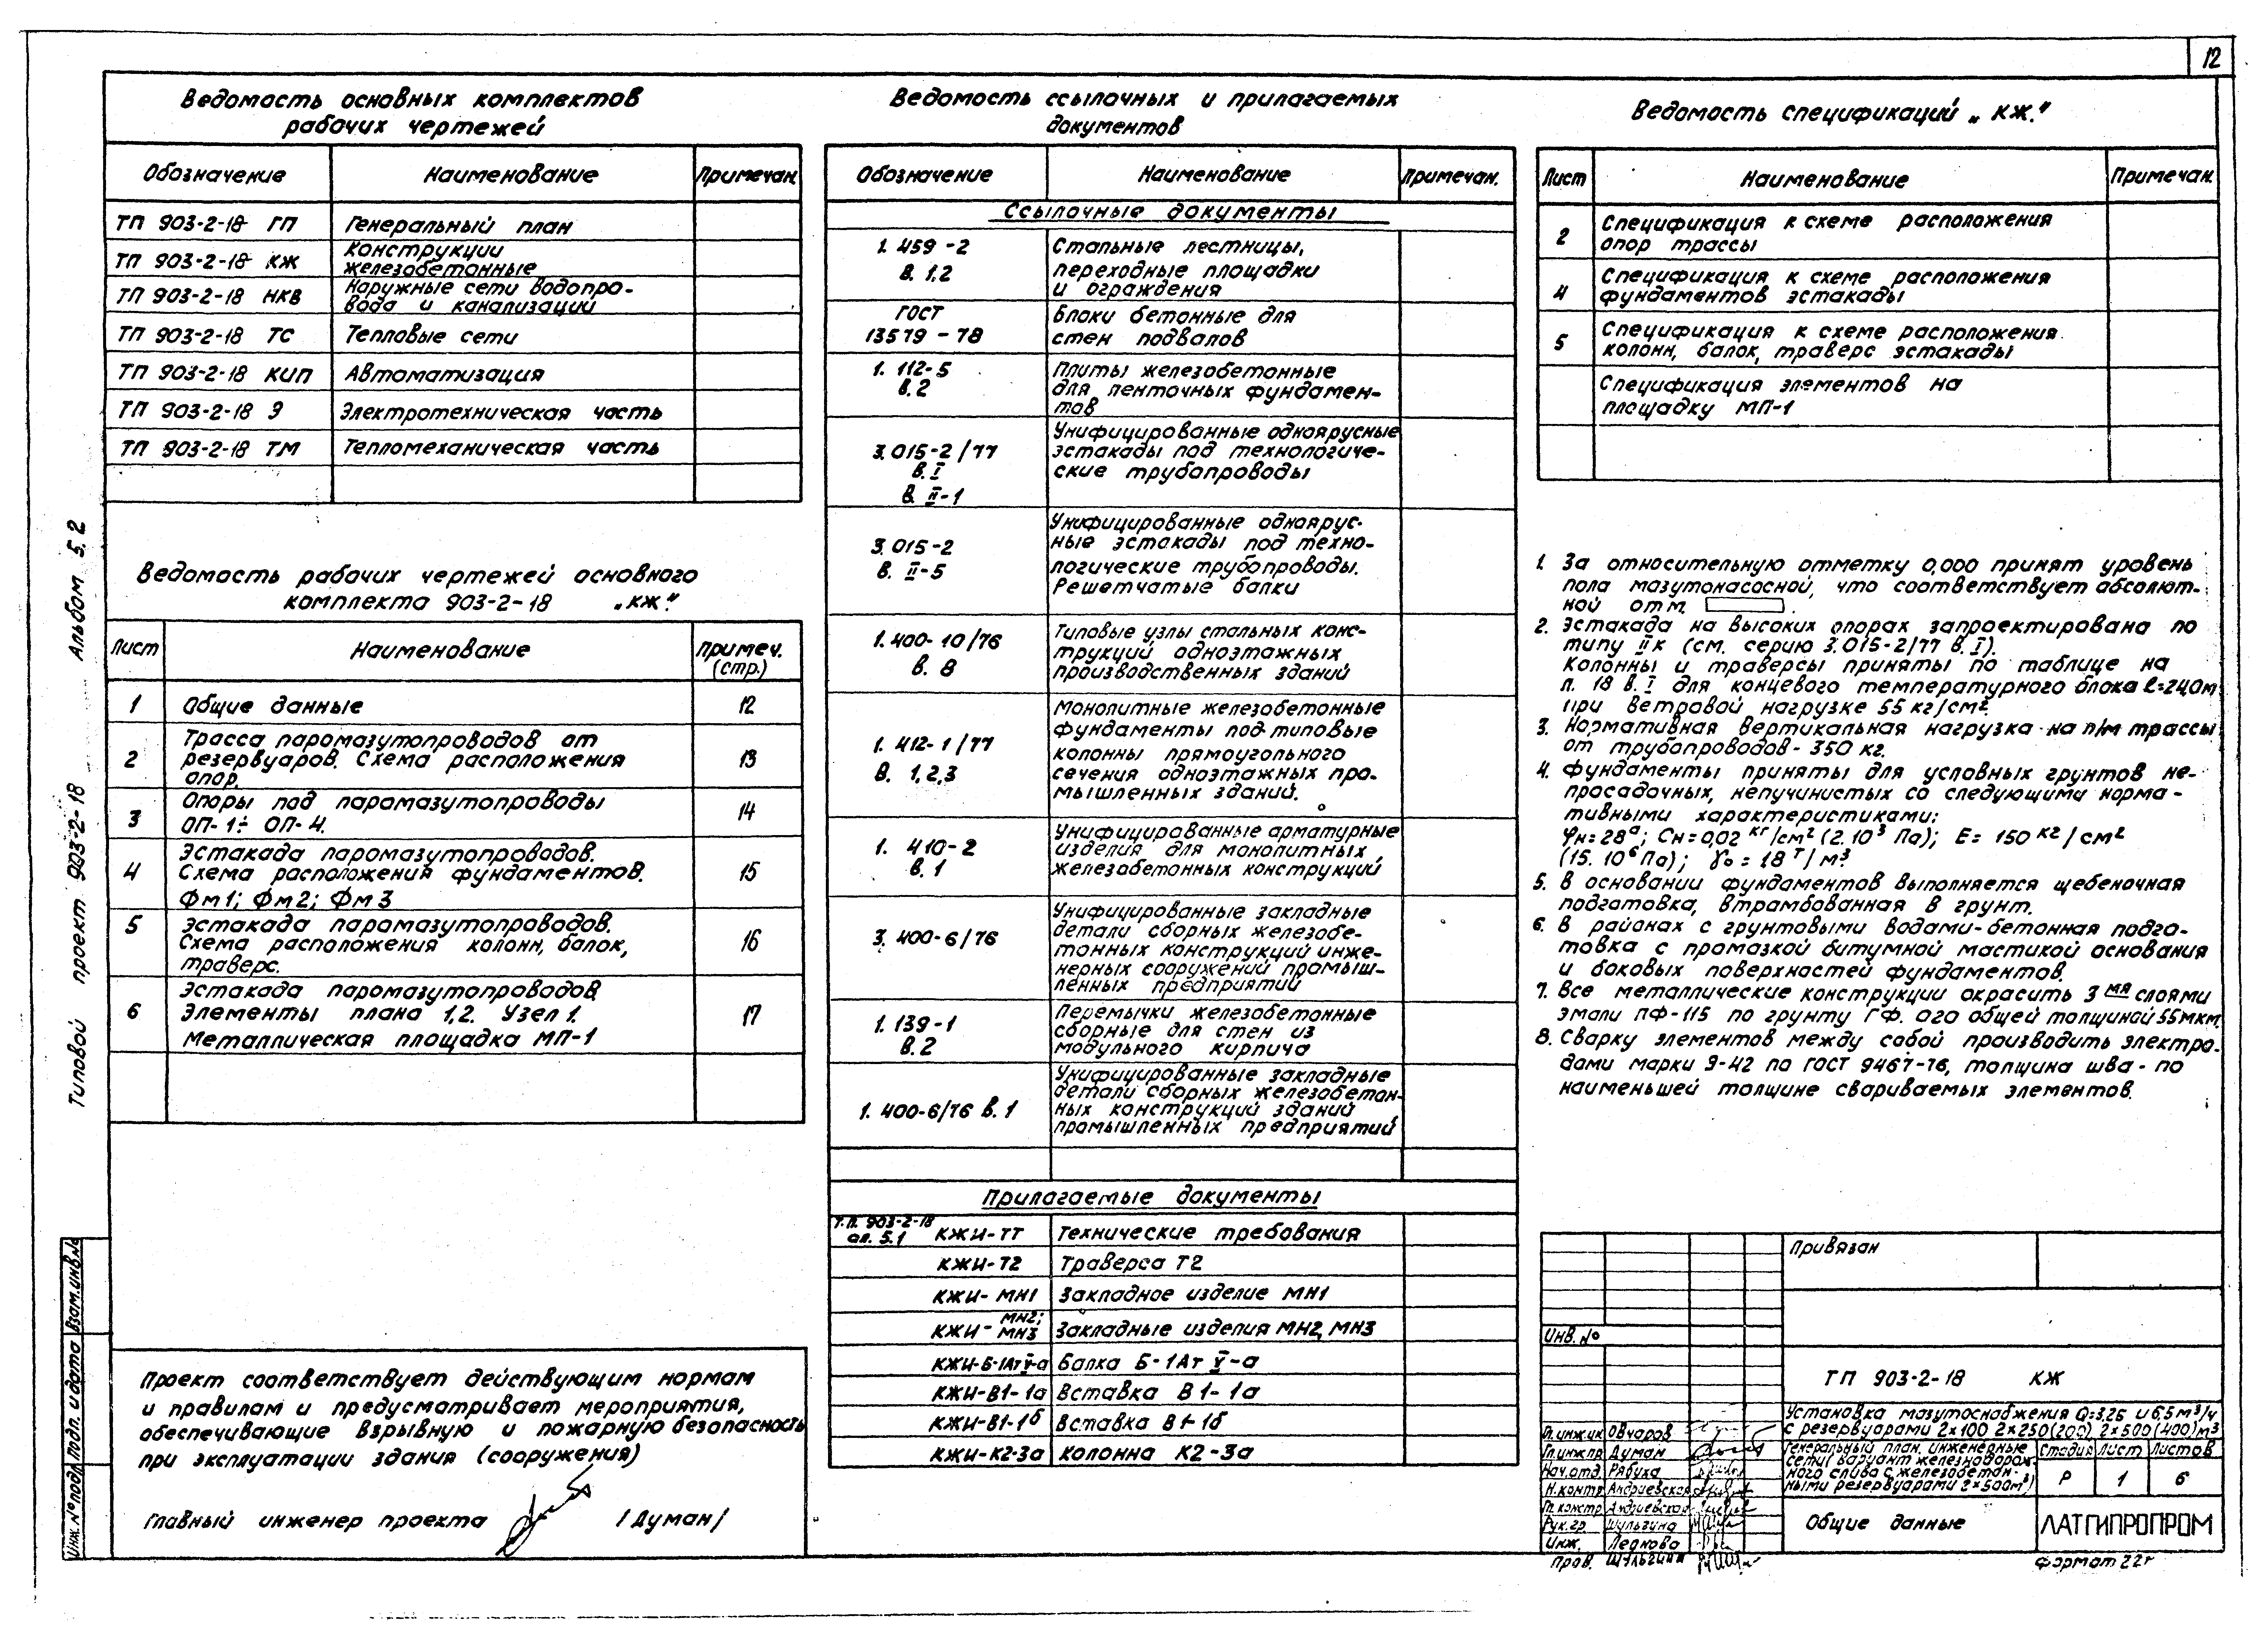 12
Ведомость основных комплектов
рабочих чертежей
Обозначение Наименование Примечан.
ТП 903-2-18 ГП Генеральный план
ТП 903-2-18 КЖ Конструкции
железобетонные
ТП 903-2-18 НКВ Наружные сети водопро-
вода и канализации
ТП 903-2-18 ТС Тепловые сети
ТП 903-2-18 КИП Автоматизация
ТП 903-2-18 Э Электротехническая часть
ТП 903-2-18 ТМ Тепломеханическая часть
Ведомость рабочих чертежей основного
комплекта 903-2-18 „КЖ."
Лист Наименование Примеч.
(стр.)
1 Общие данные 12
2 Трасса паромазутопроводов от 13
резервуаров. Схема расположения
опор.
3 Опоры под паромазутопроводы 14
ОП-1÷ ОП-4.
4 Эстакада паромазутопроводов. 15
Схема расположения фундаментов.
Фм1; Фм2; Фм3
5 Эстакада паромазутопроводов. 16
Схема расположения колонн, балок,
траверс.
6 Эстакада паромазутопроводов. 17
Элементы плана 1,2. Узел 1.
Металлическая площадка МП-1
Проект соответствует действующим нормам
и правилам и предусматривает мероприятия,
обеспечивающие взрывную и пожарную безопасность
при эксплуатации здания (сооружения)
Главный инженер проекта /Думан/
Типовой проект 903-2-18 Альбом 5.2
Инв. № подл. Подп. и дата Взам. инв. №
Ведомость ссылочных и прилагаемых
документов
Обозначение Наименование Примечан.
Ссылочные документы
1. 459-2 Стальные лестницы,
в. 1,2 переходные площадки
и ограждения
ГОСТ Блоки бетонные для
13579-78 стен подвалов
1. 112-5 Плиты железобетонные
в.2 для ленточных фундамен-
тов
3.015-2/77 Унифицированные одноярусные
в. I эстакады под технологиче-
в. II-1 ские трубопроводы
3.015-2 Унифицированные одноярус-
в. II-5 ные эстакады под техно-
логические трубопроводы.
Решетчатые балки
1.400-10/76 Типовые узлы стальных конс-
в. 8 трукций одноэтажных
производственных зданий
1. 412-1/77 Монолитные железобетонные
в. 1,2,3 фундаменты под типовые
колонны прямоугольного
сечения одноэтажных про-
мышленных зданий.
1. 410-2 Унифицированные арматурные
в.1 изделия для монолитных
железобетонных конструкций
3. 400-6/76 Унифицированные закладные
детали сборных железобе-
тонных конструкций инже-
нерных сооружений промыш-
ленных предприятий
1. 139-1 Перемычки железобетонные
в.2 сборные для стен из
модульного кирпича
1. 400-6/76 в. 1 Унифицированные закладные
детали сборных железобетон-
ных конструкций зданий
промышленных предприятий
Прилагаемые документы
Т.П. 903-2-18
ал. 5.1 КЖИ-ТТ Технические требования
КЖИ-Т2 Траверса Т2
КЖИ-МН1 Закладное изделие МН1
КЖИ-МН2; МН3 Закладные изделия МН2, МН3
КЖИ-Б-1АтV-а Балка Б-1Ат V-а
КЖИ-В1-1а Вставка В1-1а
КЖИ-В1-1б Вставка В1-1б
КЖИ-К2-3а Колонна К2-3а
Ведомость спецификаций „КЖ."
Лист Наименование Примечан.
2 Спецификация к схеме расположения
опор трассы
4 Спецификация к схеме расположения
фундаментов эстакады
5 Спецификация к схеме расположения
колонн, балок, траверс эстакады
Спецификация элементов на
площадку МП-1
1. За относительную отметку 0,000 принят уровень
пола мазутонасосной, что соответствует абсолют-
ной отм.
2. Эстакада на высоких опорах запроектирована по
типу IIк (см. серию 3.015-2/77 в. I).
Колонны и траверсы приняты по таблице на
п. 18 в. I для концевого температурного блока ℓ=24,0м
при ветровой нагрузке 55 кг/см².
3. Нормативная вертикальная нагрузка на п/м трассы
от трубопроводов - 350 кг.
4. Фундаменты приняты для условных грунтов не-
просадочных, непучинистых со следующими норма-
тивными характеристиками:
φн=28°; Сн=0,02 кг/см² (2.10³ Па); Е= 150 кг/см²
(15. 10⁶ Па); γо = 18 т/м³
5. В основании фундаментов выполняется щебеночная
подготовка, втрамбованная в грунт.
6. В районах с грунтовыми водами-бетонная подго-
товка с промазкой битумной мастикой основания
и боковых поверхностей фундаментов.
7. Все металлические конструкции окрасить 3мя слоями
эмали ПФ-115 по грунту ГФ. 020 общей толщиной 55мкм.
8. Сварку элементов между собой производить электро-
дами марки Э-42 по ГОСТ 9467-76, толщина шва - по
наименьшей толщине свариваемых элементов.
Привязан
Инв. №
ТП 903-2-18 КЖ
Установка мазутоснабжения Q=3,25 и 6,5 м³/ч
с резервуарами 2×100 2×250(200), 2×500(400) м³
Гл.инж.ин Овчаров
Гл.инж.пр Думан
Нач.отд. Рябуха
Н.контр. Андриевская
Гл. констр. Андриевская
Рук.гр. Шульгина
Инж. Леднова
Пров. Шульгина
Генеральный план, инженерные
сети (вариант железнодорож-
ного слива с железобетон-
ными резервуарами 2×500м³)
Стадия Лист Листов
Р 1 6
Общие данные
ЛАТГИПРОПРОМ
Формат 22г